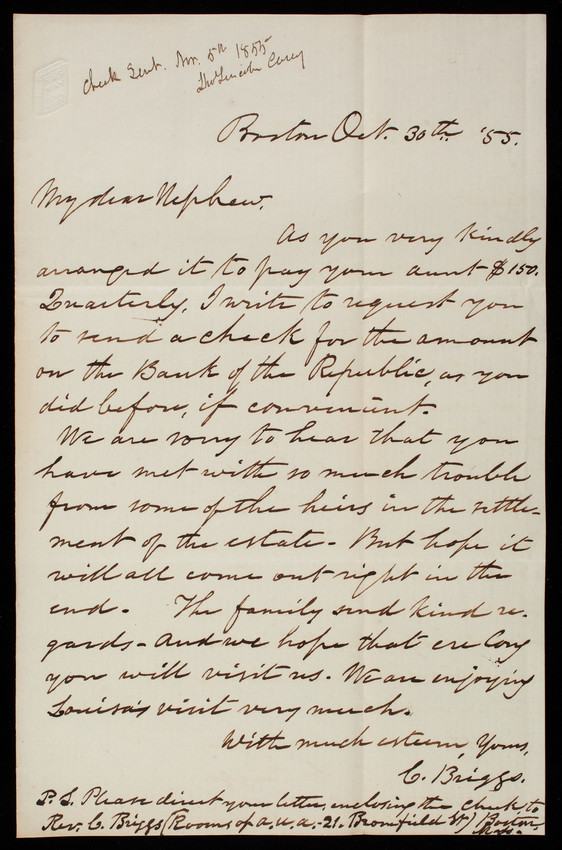 Check Sent. Nov. 5th 1855
Tho Lincoln Casey
Boston Oct. 30th. '55.
My dear Nephew.
As you very kindly
arranged it to pay your aunt $150.
Quarterly, I write to request you
to send a check for the amount
on the Bank of the Republic, as you
did before, if convenient.
We are sorry to hear that you
have met with so much trouble
from some of the heirs in the settle-
ment of the estate - But hope it
will all come out right in the
end. The family send kind re-
gards - and we hope that ere long
you will visit us. We are enjoying
Louisa's visit very much.
With much esteem, Yours,
C. Briggs.
P.S. Please direct your letter, enclosing the check to
Rev. C. Briggs (Rooms of A.U.A. - 21. Bromfield St) Boston,
Mass.